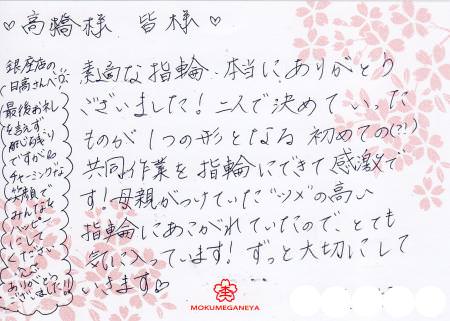 ♡高橋様 皆様♡
素適な指輪、本当にありがとう
ございました！二人で決めていった
ものが1つの形となる初めての(?!)
共同作業を指輪にできて感激で
す！母親がつけていた"ツメ"の高い
指輪にあこがれていたので、とても
気に入っています！ずっと大切にして
いきます♡
銀座店の
日高さんへ♡
最後お礼
を言えず
ですが
チャーミングな
笑顔で
みんなを
ハッピー
にして
ください
ありがとう
ございました!!
MOKUMEGANEYA